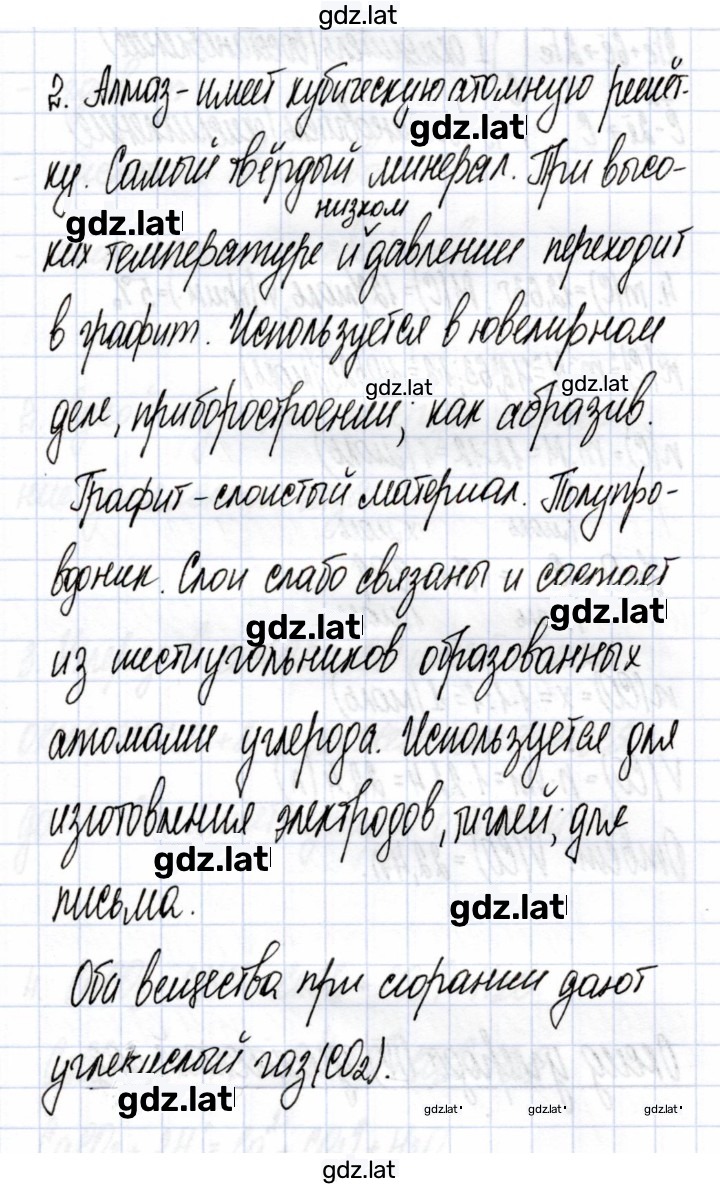 gdz.lat
2. Алмаз - имеет кубическую атомную решёт-
gdz.lat
ку. Самый твёрдый минерал. При высо-
gdz.lat
низком
ких температуре и давлении переходит
в графит. Используется в ювелирном
gdz.lat gdz.lat
деле, приборостроении; как абразив.
Графит - слоистый материал. Полупро-
водник. Слои слабо связаны и состоят
gdz.lat gdz.lat
из шестиугольников образованных
атомами углерода. Используется для
изготовления электродов, тиглей; для
gdz.lat
письма.
gdz.lat
Оба вещества при сгорании дают
углекислый газ (CO₂).
gdz.lat
gdz.lat gdz.lat gdz.lat
gdz.lat